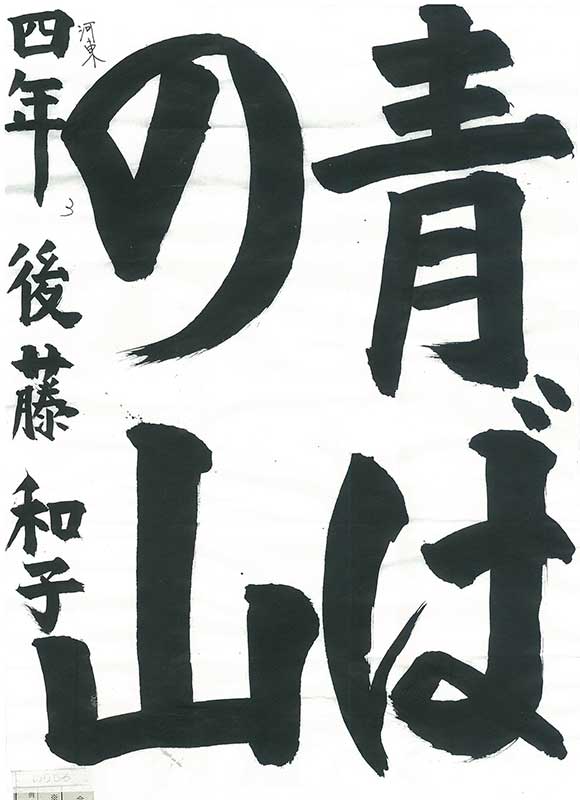 青ば
の山
河東
四年 後藤 和子
3